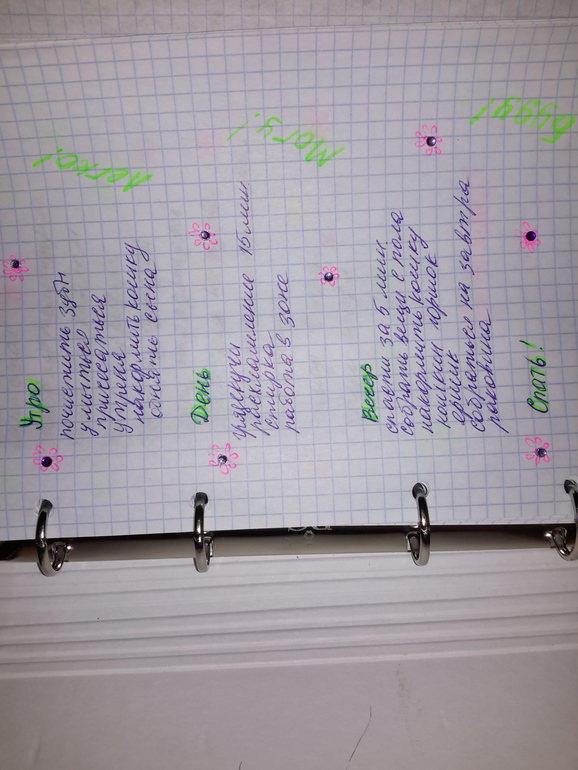 Утро
почистить зубы
умыться
причесаться
накормить кошку
одеть сына
Легко!
День
прыжки
расхламление 15 мин
стирка
работа в зоне
Могу!
Вечер
спасти за 5 мин.
собрать вещи с пола
накормить кошку
кошкин горшок
ершик
собраться на завтра
раковина
Буду!
Спать!